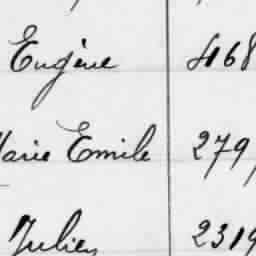 Eugène 4168
Marie Emile 279
Julien 2319